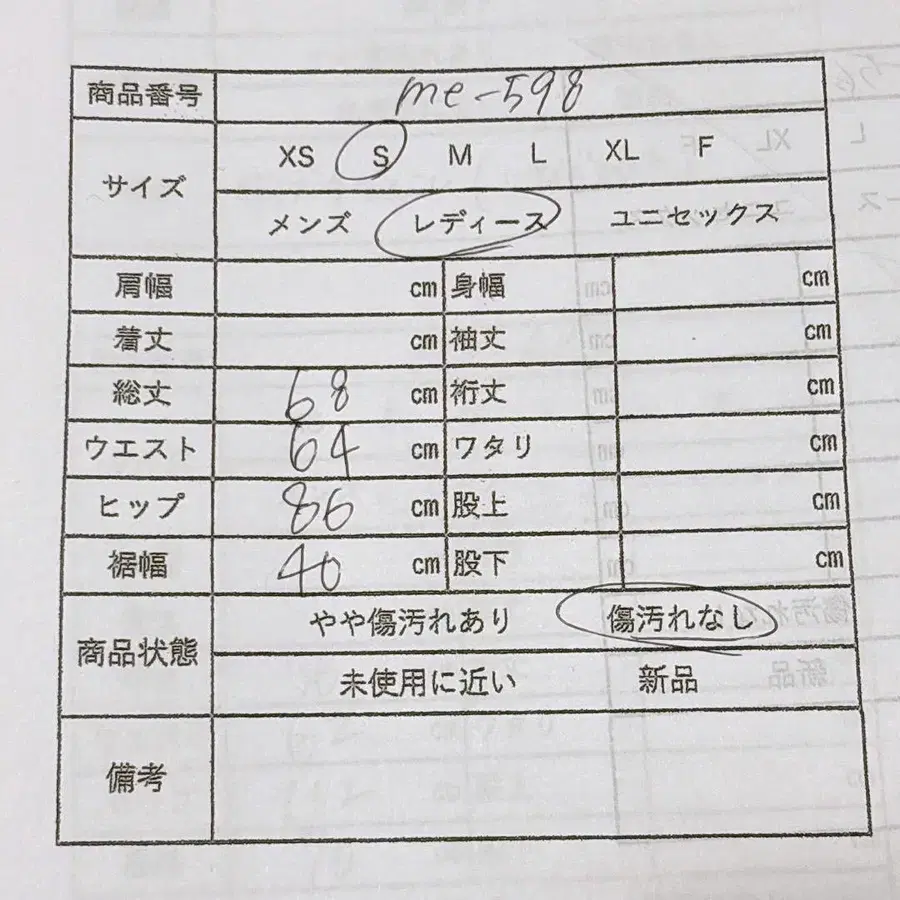 商品番号 me-598
サイズ XS S M L XL F
メンズ レディース ユニセックス
肩幅 cm 身幅 cm
着丈 cm 袖丈 cm
総丈 68 cm 裄丈 cm
ウエスト 64 cm ワタリ cm
ヒップ 86 cm 股上 cm
裾幅 40 cm 股下 cm
商品状態 やや傷汚れあり 傷汚れなし
未使用に近い 新品
備考